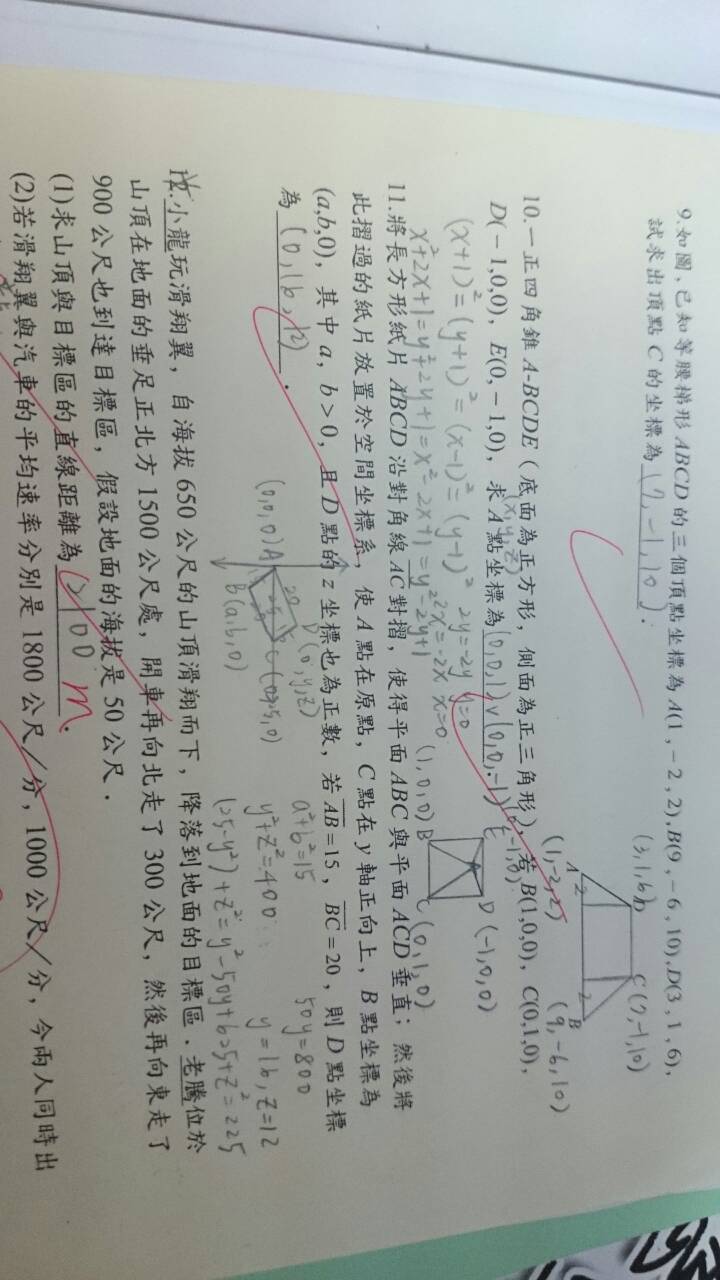 9.如圖,已知等腰梯形ABCD的三個頂點坐標為A(1,-2,2),B(9,-6,10),D(3,1,6),
試求出頂點C的坐標為(7,-1,10).
(3,1,6)D
C(7,-1,10)
A
2
2
B
(1,-2,2)
(9,-6,10)
10.一正四角錐A-BCDE(底面為正方形,側面為正三角形),若B(1,0,0),C(0,1,0),
(x,y,z)
D(-1,0,0),E(0,-1,0),求A點坐標為(0,0,1)∨(0,0,-1).
(x+1)²=(y+1)²=(x-1)²=(y-1)² 2y=-2y y=0
x²+2x+1=y²+2y+1=x²-2x+1=y²-2y+1
2x=-2x x=0
D(-1,0,0)
(1,0,0)B
C(0,1,0)
11.將長方形紙片ABCD沿對角線AC對摺,使得平面ABC與平面ACD垂直;然後將
此摺過的紙片放置於空間坐標系,使A點在原點,C點在y軸正向上,B點坐標為
(a,b,0),其中a,b>0,且D點的z坐標也為正數,若AB=15,BC=20,則D點坐標
為(0,16,12).
(0,0,0)A
20
D(0,y,z)
B(a,b,0)
a²+b²=15
y²+z²=400
50y=800
y=16,z=12
12.小龍玩滑翔翼,自海拔650公尺的山頂滑翔而下,降落到地面的目標區.老騰位於
山頂在地面的垂足正北方1500公尺處,開車再向北走了300公尺,然後再向東走了
900公尺也到達目標區,假設地面的海拔是50公尺.
(1)求山頂與目標區的直線距離為2100 m.
(2)若滑翔翼與汽車的平均速率分別是1800公尺/分,1000公尺/分,今兩人同時出